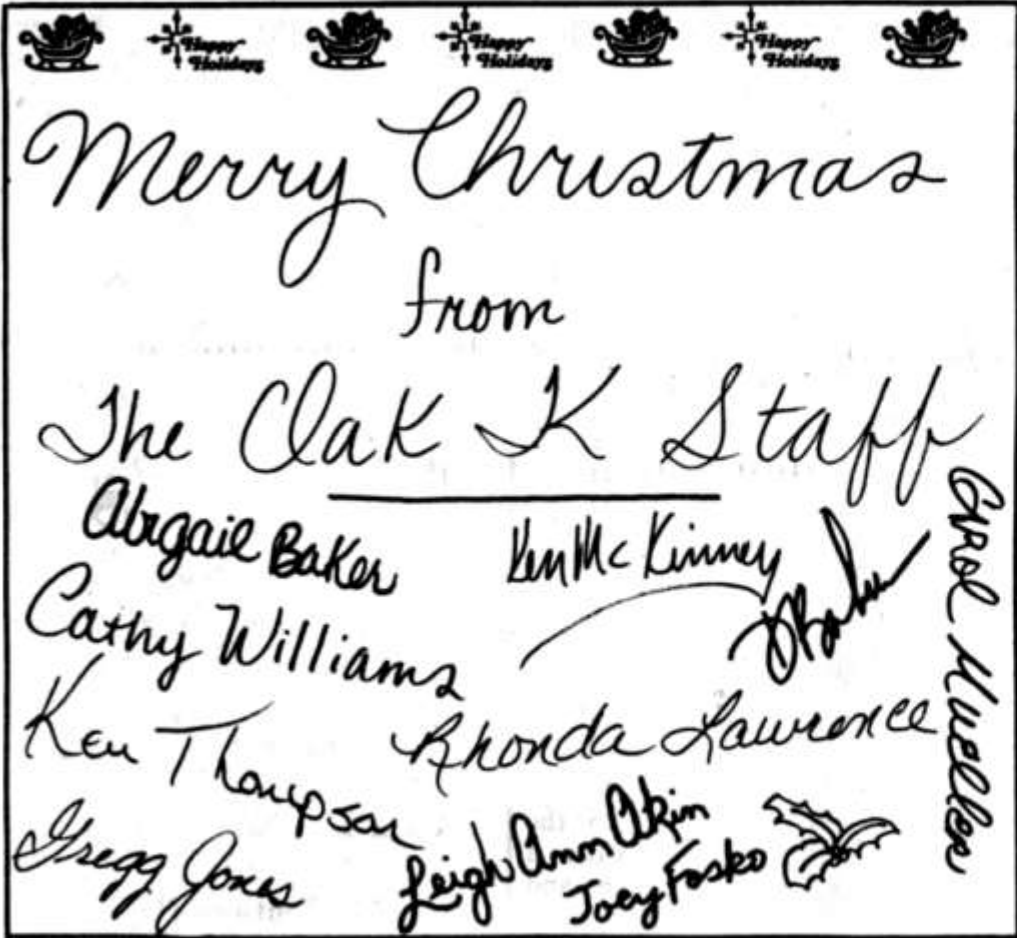 Happy Holidays Happy Holidays Happy Holidays
Merry Christmas
from
The Oak K Staff
Abigail Baker
Ken McKinney
Cathy Williams
Ken Thompson
Rhonda Lawrence
Gregg Jones
Leigh Ann Akin
Joey Fosko
Carol Mueller